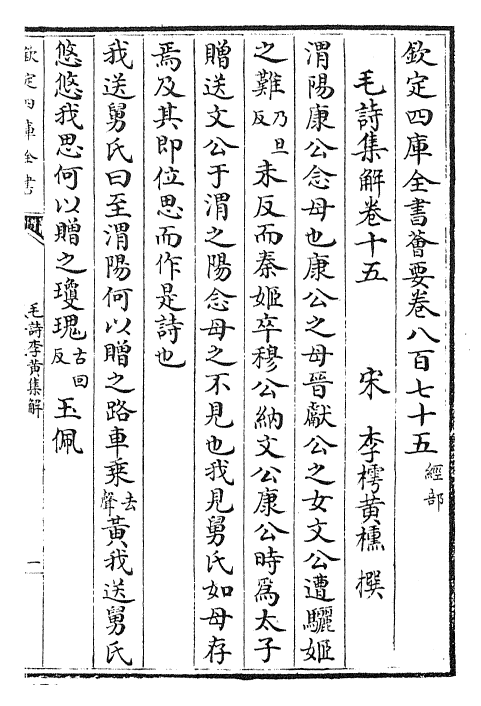 欽定四庫全書薈要卷八百七十五 經部
毛詩集解卷十五 宋 李樗黄櫄 撰
渭陽康公念母也康公之母晉獻公之女文公遭驪姬
之難乃旦反未反而秦姬卒穆公納文公康公時爲太子
贈送文公于渭之陽念母之不見也我見舅氏如母存
焉及其即位思而作是詩也
我送舅氏曰至渭陽何以贈之路車乘去聲黃我送舅氏
悠悠我思何以贈之瓊瑰古回反玉佩
欽定四庫全書
毛詩李黃集解
一